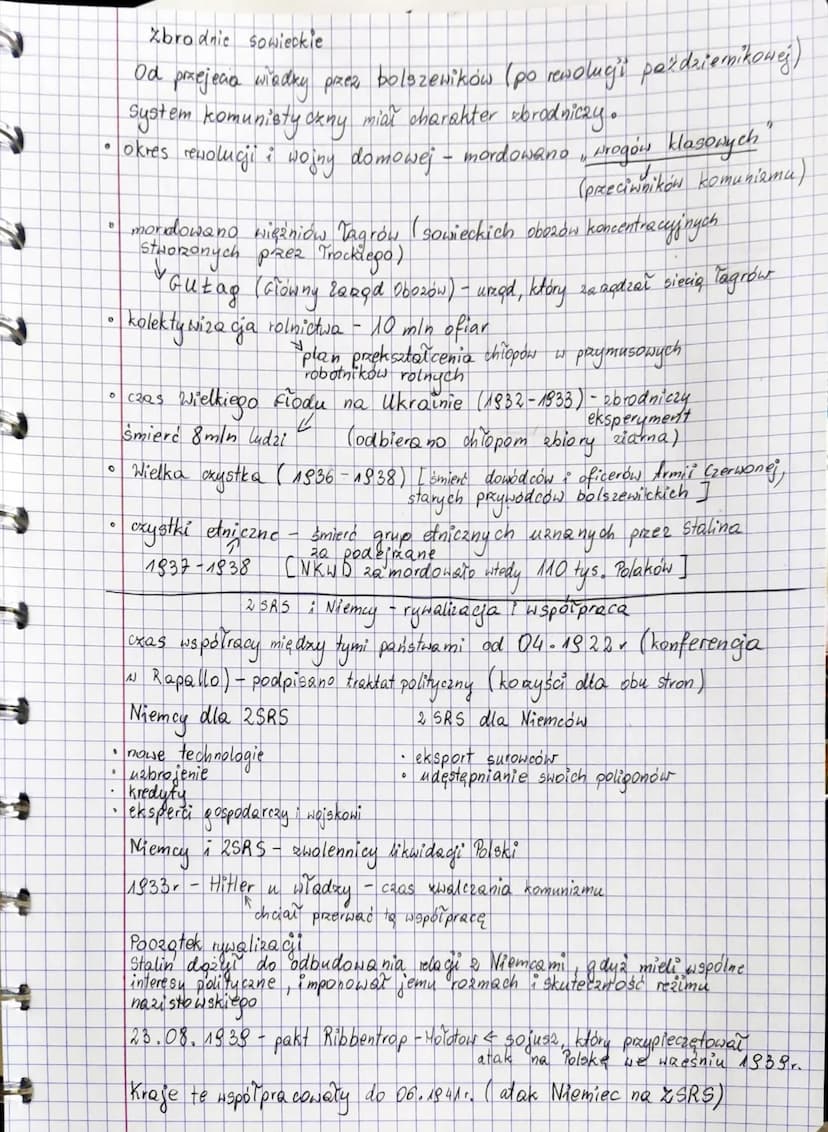 Zbrodnie sowieckie
Od przejęcia władzy przez bolszewików (po rewolucji październikowej)
system komunistyczny miał charakter zbrodniczy.
• okres rewolucji i wojny domowej - mordowano „wrogów klasowych"
(przeciwników komunizmu)
• mordowano więźniów łagrów (sowieckich obozów koncentracyjnych
stworzonych przez Trockiego)
↳ GUŁag (Główny Zarząd Obozów) - urząd, który zarządzał siecią łagrów
• kolektywizacja rolnictwa - 10 mln ofiar
↳ plan przekształcenia chłopów w przymusowych
robotników rolnych
• czas Wielkiego Głodu na Ukrainie (1932-1933) - zbrodniczy
eksperyment
śmierć 8 mln ludzi ↙ (odbierano chłopom zbiory ziarna)
• Wielka czystka (1936-1938) [śmierć dowódców i oficerów Armii Czerwonej,
starych przywódców bolszewickich]
• czystki etniczne - śmierć grup etnicznych uznanych przez Stalina
za podejrzane
1937-1938 [NKWD zamordowało wtedy 110 tys. Polaków]
ZSRS i Niemcy - rywalizacja i współpraca
czas współracy między tymi państwami od 04.1922r (konferencja
w Rapallo) - podpisano traktat polityczny (korzyści dla obu stron)
Niemcy dla ZSRS ZSRS dla Niemców
• nowe technologie • eksport surowców
• uzbrojenie • udęstępnianie swoich poligonów
• kredyty
• eksperci gospodarczy i wojskowi
Niemcy i ZSRS - zwolennicy likwidacji Polski
1933r - Hitler u władzy - czas zwalczania komunizmu
↖ chciał przerwać tą współpracę
Początek rywalizacji
Stalin dążył do odbudowania relacji z Niemcami, gdyż mieli wspólne
interesy polityczne, imponował jemu rozmach i skuteczność reżimu
nazistowskiego
23.08.1939 - pakt Ribbentrop - Mołotow ← sojusz, który przypieczętował
atak na Polskę we wrześniu 1939r.
Kraje te współpracowały do 06.1941r. (atak Niemiec na ZSRS)